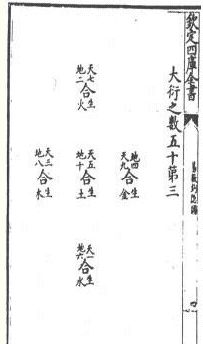 欽定四庫全書
大衍之數五十第三
地四生
天九合金
天七生
地二合火
天五生
地十合土
天一生
地六合水
天三生
地八合木